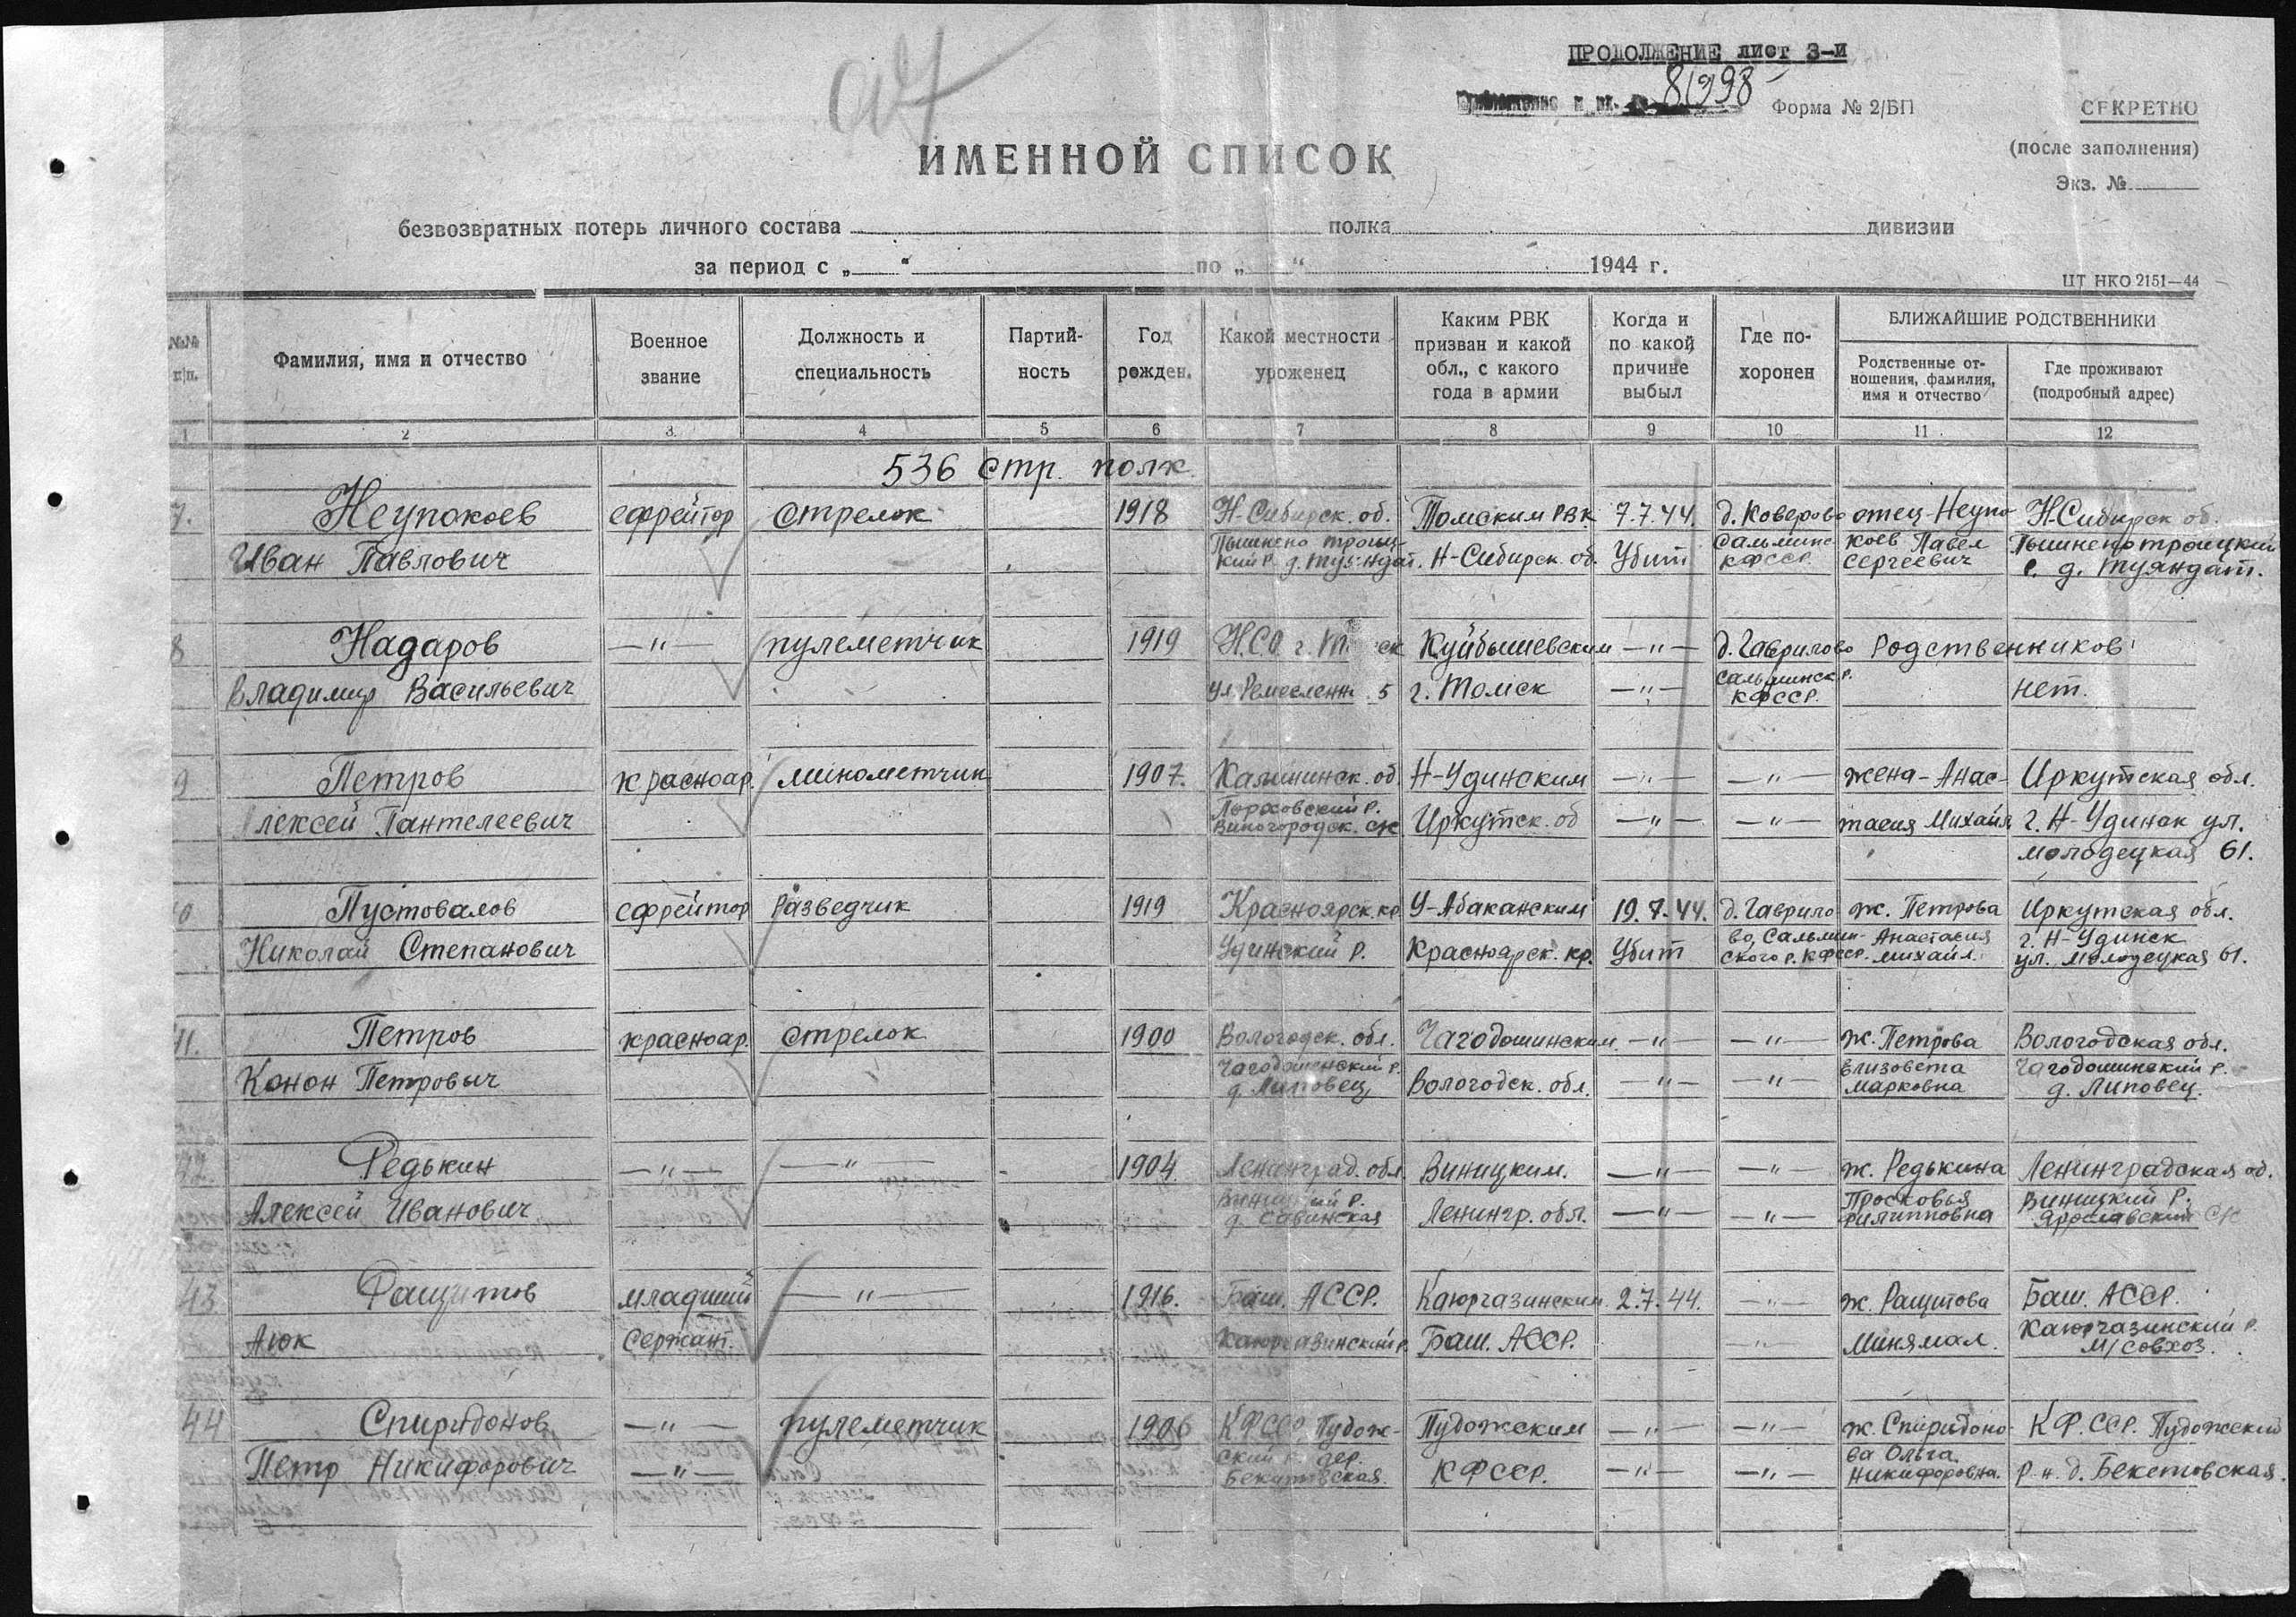 ПРОДОЛЖЕНИЕ лист 3-й
81998
Форма № 2/БП
СЕКРЕТНО
(после заполнения)
Экз. №
ИМЕННОЙ СПИСОК
безвозвратных потерь личного состава полка дивизии
за период с „ “ по „ “ 1944 г.
ЦТ НКО 2151—44
№№ п/п.
Фамилия, имя и отчество
Военное звание
Должность и специальность
Партий-
ность
Год рожден.
Какой местности уроженец
Каким РВК
призван и какой
обл., с какого
года в армии
Когда и
по какой
причине
выбыл
Где по-
хоронен
БЛИЖАЙШИЕ РОДСТВЕННИКИ
Родственные от-
ношения, фамилия,
имя и отчество
Где проживают
(подробный адрес)
1 2 3 4 5 6 7 8 9 10 11 12
536 стр. полк
7. Неупокоев ефрейтор стрелок 1918 Н-Сибирск. об. Томским РВК 7.7.44. д. Коверово отец-Неупо Н-Сибирск об.
Иван Павлович Пышкено троиц-
кий р. Н-Сибирск. об. Убит Сальминс
КФССР коев Павел
Сергеевич Пышкенотроицкий
р. д.
8 Надаров —"— пулеметчик 1919 Н.С.О. г. Куйбышевским —"— д. Гаврилово Родственников
Владимир Васильевич ул. Ремесленн. 5 г. Томск —"— Сальминск р.
КФССР. нет.
9 Петров красноар. минометчик 1907. Калининск. об. Н-Удинским —"— —"— жена-Анас- Иркутская обл.
Алексей Пантелеевич Порховский р.
Виногородск. с/с. Иркутск. об —"— —"— тасия Михайл г. Н-Удинск ул.
Молодецкая 61.
0 Пустовалов ефрейтор Разведчик 1919 Красноярск. кр. У-Абаканским 19.7.44. д. Гаврило ж. Петрова Иркутская обл.
Николай Степанович Удинский р. Красноярск. кр. Убит во, Сальмин-
ского р. КФССР. Анастасия
Михайл. г. Н-Удинск
ул. Молодецкая 61.
41. Петров красноар. стрелок 1900 Вологодск. обл. Чагодошинским —"— —"— ж. Петрова Вологодская обл.
Конон Петрович Чагодошинский р.
д. Липовец Вологодск. обл. —"— —"— Елизовета
Марковна Чагодошинский р.
д. Липовец.
42. Редькин —"— —"— 1904 Ленинград. обл. Виницким. —"— —"— ж. Редькина Ленинградская об.
Алексей Иванович Виницкий р.
д. Савинская Ленингр. обл. —"— —"— Просковья
Филипповна Виницкий р.
Ярославский с/с
43 Ращитов младший —"— 1916. Баш. АССР. Каюргазинским 2.7.44. —"— ж. Ращитова Баш. АССР.
Аюк Сержант. Каюргазинский р. Баш. АССР. —"— Минямал. Каюргазинский р.
М/совхоз.
44 Спиридонов —"— пулеметчик 1906 КФССР Пудож- Пудожским —"— —"— ж. Спиридоно КФ.ССР. Пудожский
Петр Никифорович —"— ский р. дер.
Бекетовская. КФССР. —"— —"— ва Ольга
Никифоровна. р-н. д. Бекетовская.